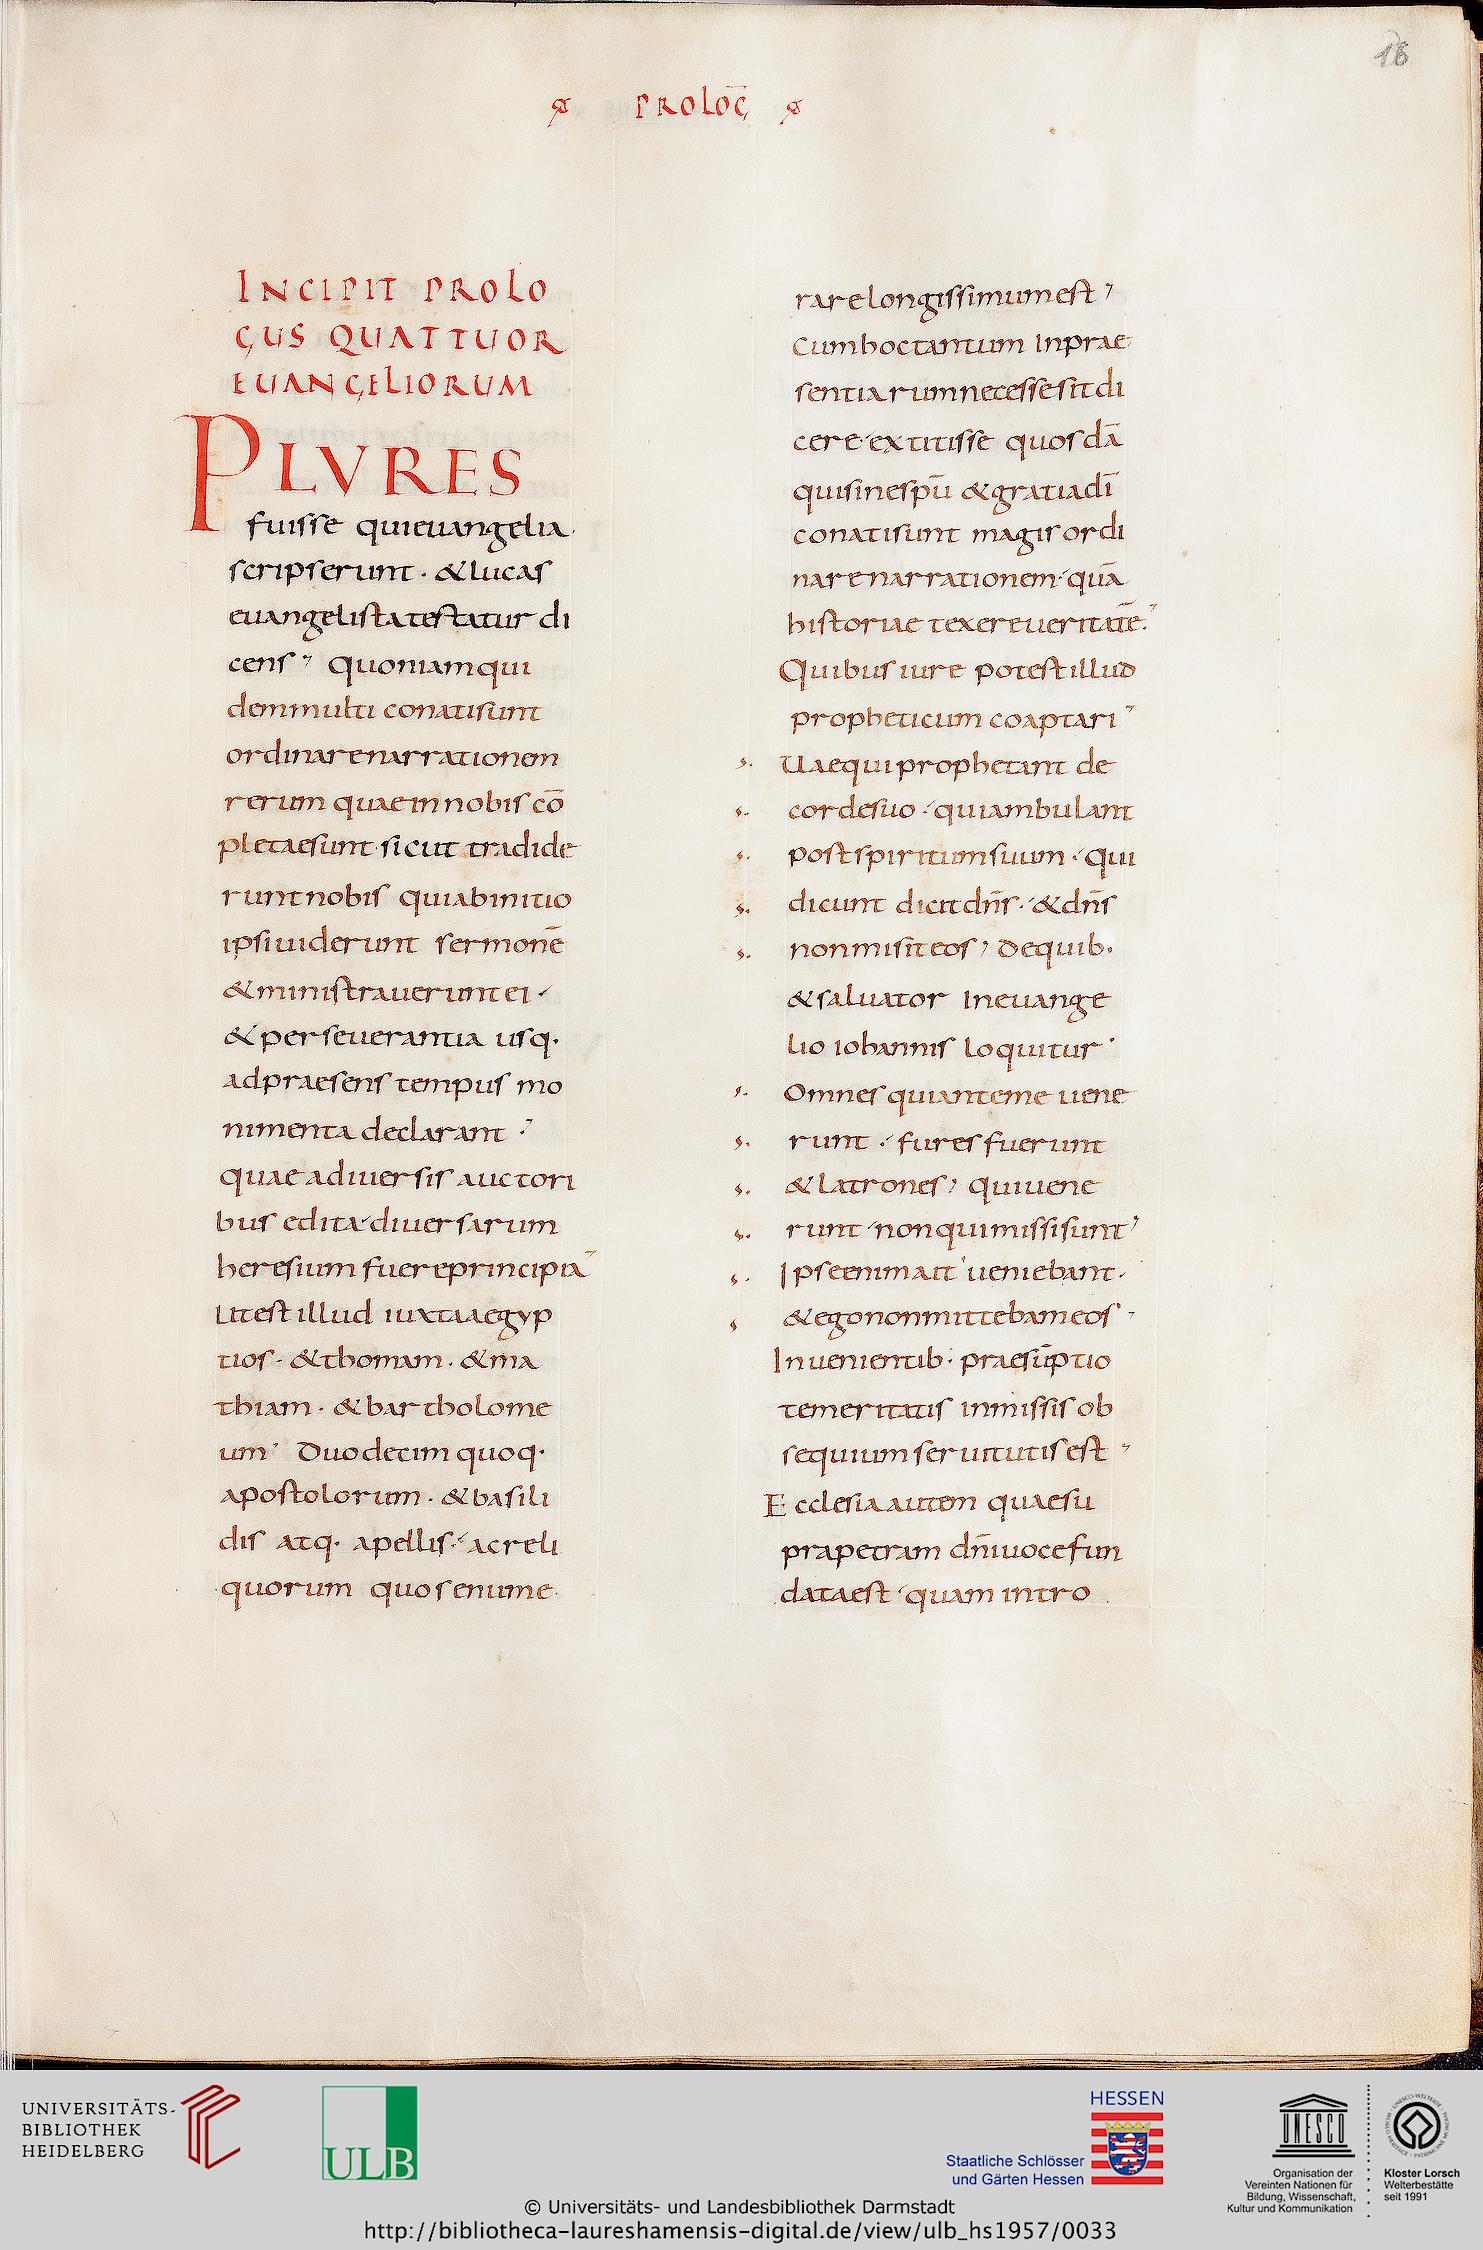 16
PROLOḠ
INCIPIT PROLO
GUS QUATTUOR
EUANGELIORUM
PLVRES
fuisse quieuangelia.
scripserunt · &lucas
euangelistatestatur di
cens quoniamqui
demmulti conatisunt
ordinarenarrationem
rerum quaeinnobis cō
pletaesunt·sicut tradide
runtnobis quiabinitio
ipsiuiderunt sermonē
&ministraueruntei ·
&perseuerantia usq·
adpraesens tempus mo
nimenta declarant
quae adiuersis auctori
bus edita diuersarum
heresium fuereprincipia
Utestillud iuxtaaegyp
tios · &thomam · &ma
thiam · &bartholome
um Duodecim quoq·
apostolorum · &basili
dis atq· apellis · acreli
quorum quosenume
rarelongissimumest
Cumhoctantum Inprae
sentiarumnecessesitdi
cere extitisse quosdā
quisinesp̄u &gratiad̄i
conatisunt magisordi
narenarrationem quā
historiae texereueritatē.
Quibus iure potestillud
propheticum coaptari
Uaequiprophetant de
cordesuo · quiambulant
postspiritumsuum · Qui
dicunt dicitdn̄s · &dn̄s
nonmisiteos Dequib·
&saluator Ineuange
lio iohannis loquitur
Omnesquianteme uene
runt · furesfuerunt
&latrones quiuene
runt nonquimissisunt
Ipseenimait ueniebant·
&egononmittebameos
Inuenientib· praesūptio
temeritatis inmissis ob
sequiumseruitutisest
Ecclesiaautem quaesu
prapetram dn̄iuocefun
dataest quam intro
UNIVERSITÄTS-
BIBLIOTHEK
HEIDELBERG
ULB
HESSEN
Staatliche Schlösser
und Gärten Hessen
UNESCO
Organisation der
Vereinten Nationen für
Bildung, Wissenschaft,
Kultur und Kommunikation
Kloster Lorsch
Welterbestätte
seit 1991
© Universitäts- und Landesbibliothek Darmstadt
http://bibliotheca-laureshamensis-digital.de/view/ulb_hs1957/0033